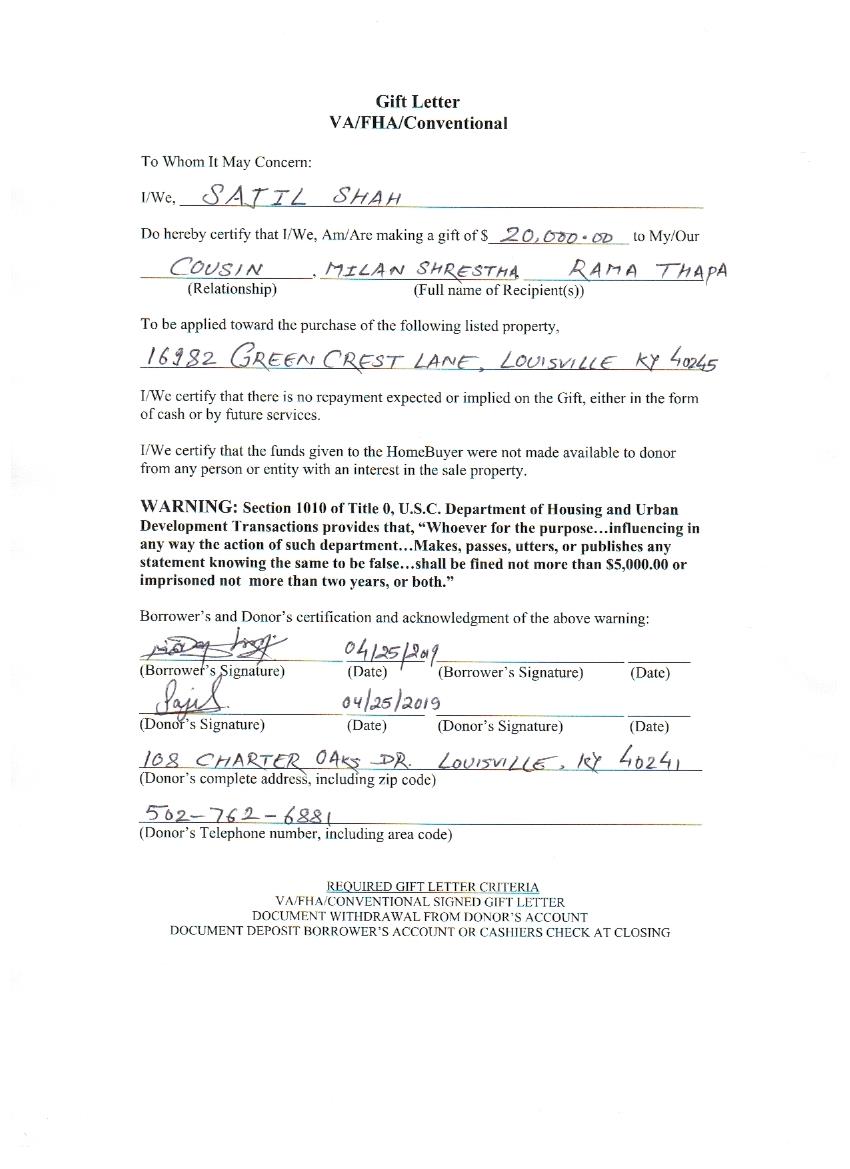 Gift Letter
VA/FHA/Conventional
To Whom It May Concern:
I/We, SAJIL SHAH
Do hereby certify that I/We, Am/Are making a gift of $ 20,000.00 to My/Our
COUSIN , MILAN SHRESTHA RAMA THAPA
(Relationship) (Full name of Recipient(s))
To be applied toward the purchase of the following listed property,
16982 GREEN CREST LANE, LOUISVILLE KY 40245
I/We certify that there is no repayment expected or implied on the Gift, either in the form
of cash or by future services.
I/We certify that the funds given to the HomeBuyer were not made available to donor
from any person or entity with an interest in the sale property.
WARNING: Section 1010 of Title 0, U.S.C. Department of Housing and Urban
Development Transactions provides that, “Whoever for the purpose…influencing in
any way the action of such department…Makes, passes, utters, or publishes any
statement knowing the same to be false…shall be fined not more than $5,000.00 or
imprisoned not more than two years, or both.”
Borrower’s and Donor’s certification and acknowledgment of the above warning:
04/25/2019
(Borrower’s Signature) (Date) (Borrower’s Signature) (Date)
Sajil 04/25/2019
(Donor’s Signature) (Date) (Donor’s Signature) (Date)
108 CHARTER OAKS DR. LOUISVILLE, KY 40241
(Donor’s complete address, including zip code)
502-762-6881
(Donor’s Telephone number, including area code)
REQUIRED GIFT LETTER CRITERIA
VA/FHA/CONVENTIONAL SIGNED GIFT LETTER
DOCUMENT WITHDRAWAL FROM DONOR’S ACCOUNT
DOCUMENT DEPOSIT BORROWER’S ACCOUNT OR CASHIERS CHECK AT CLOSING